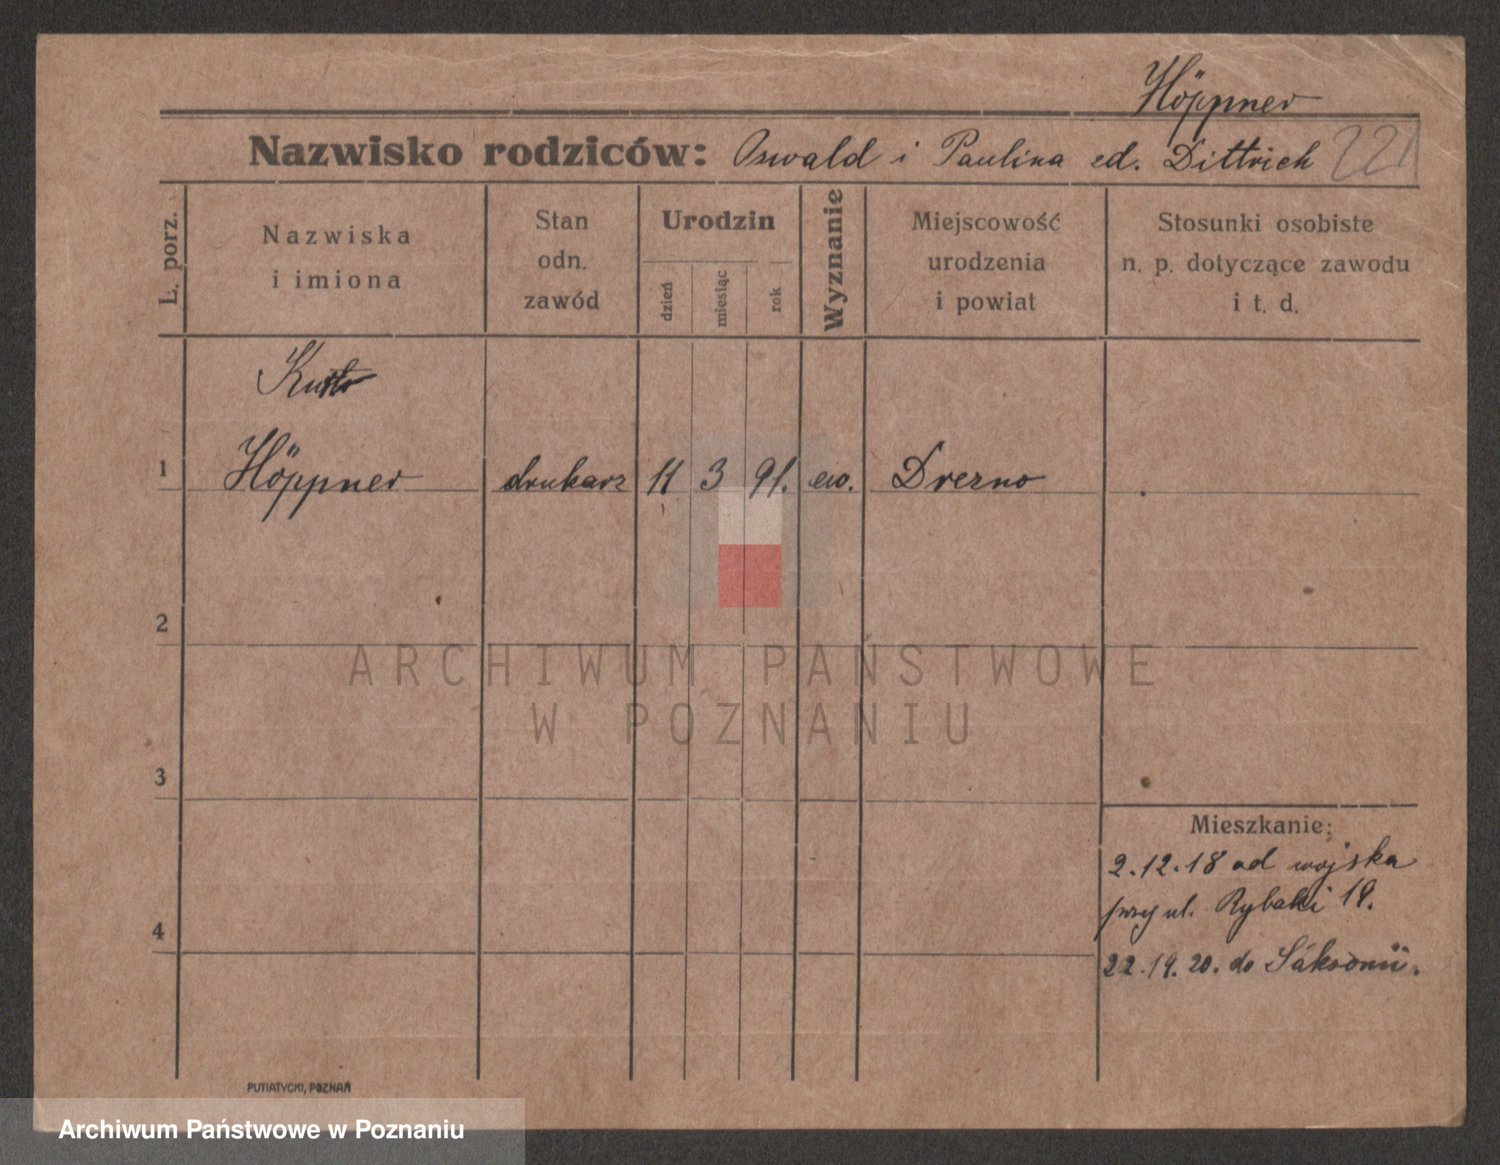 Höppner
Nazwisko rodziców: Oswald i Paulina ed. Dittrich 221
L. porz.
Nazwiska
i imiona
Stan
odn.
zawód
Urodzin
dzień
miesiąc
rok
Wyznanie
Miejscowość
urodzenia
i powiat
Stosunki osobiste
n. p. dotyczące zawodu
i t. d.
1 Höppner drukarz 11 3 91. ew. Drezno
2
3
4
Mieszkanie:
2.12.18 od wojska
przy ul. Rybaki 19.
20. do Saksonii.
ARCHIWUM PAŃSTWOWE
W POZNANIU
PUTIATYCKI, POZNAŃ
Archiwum Państwowe w Poznaniu